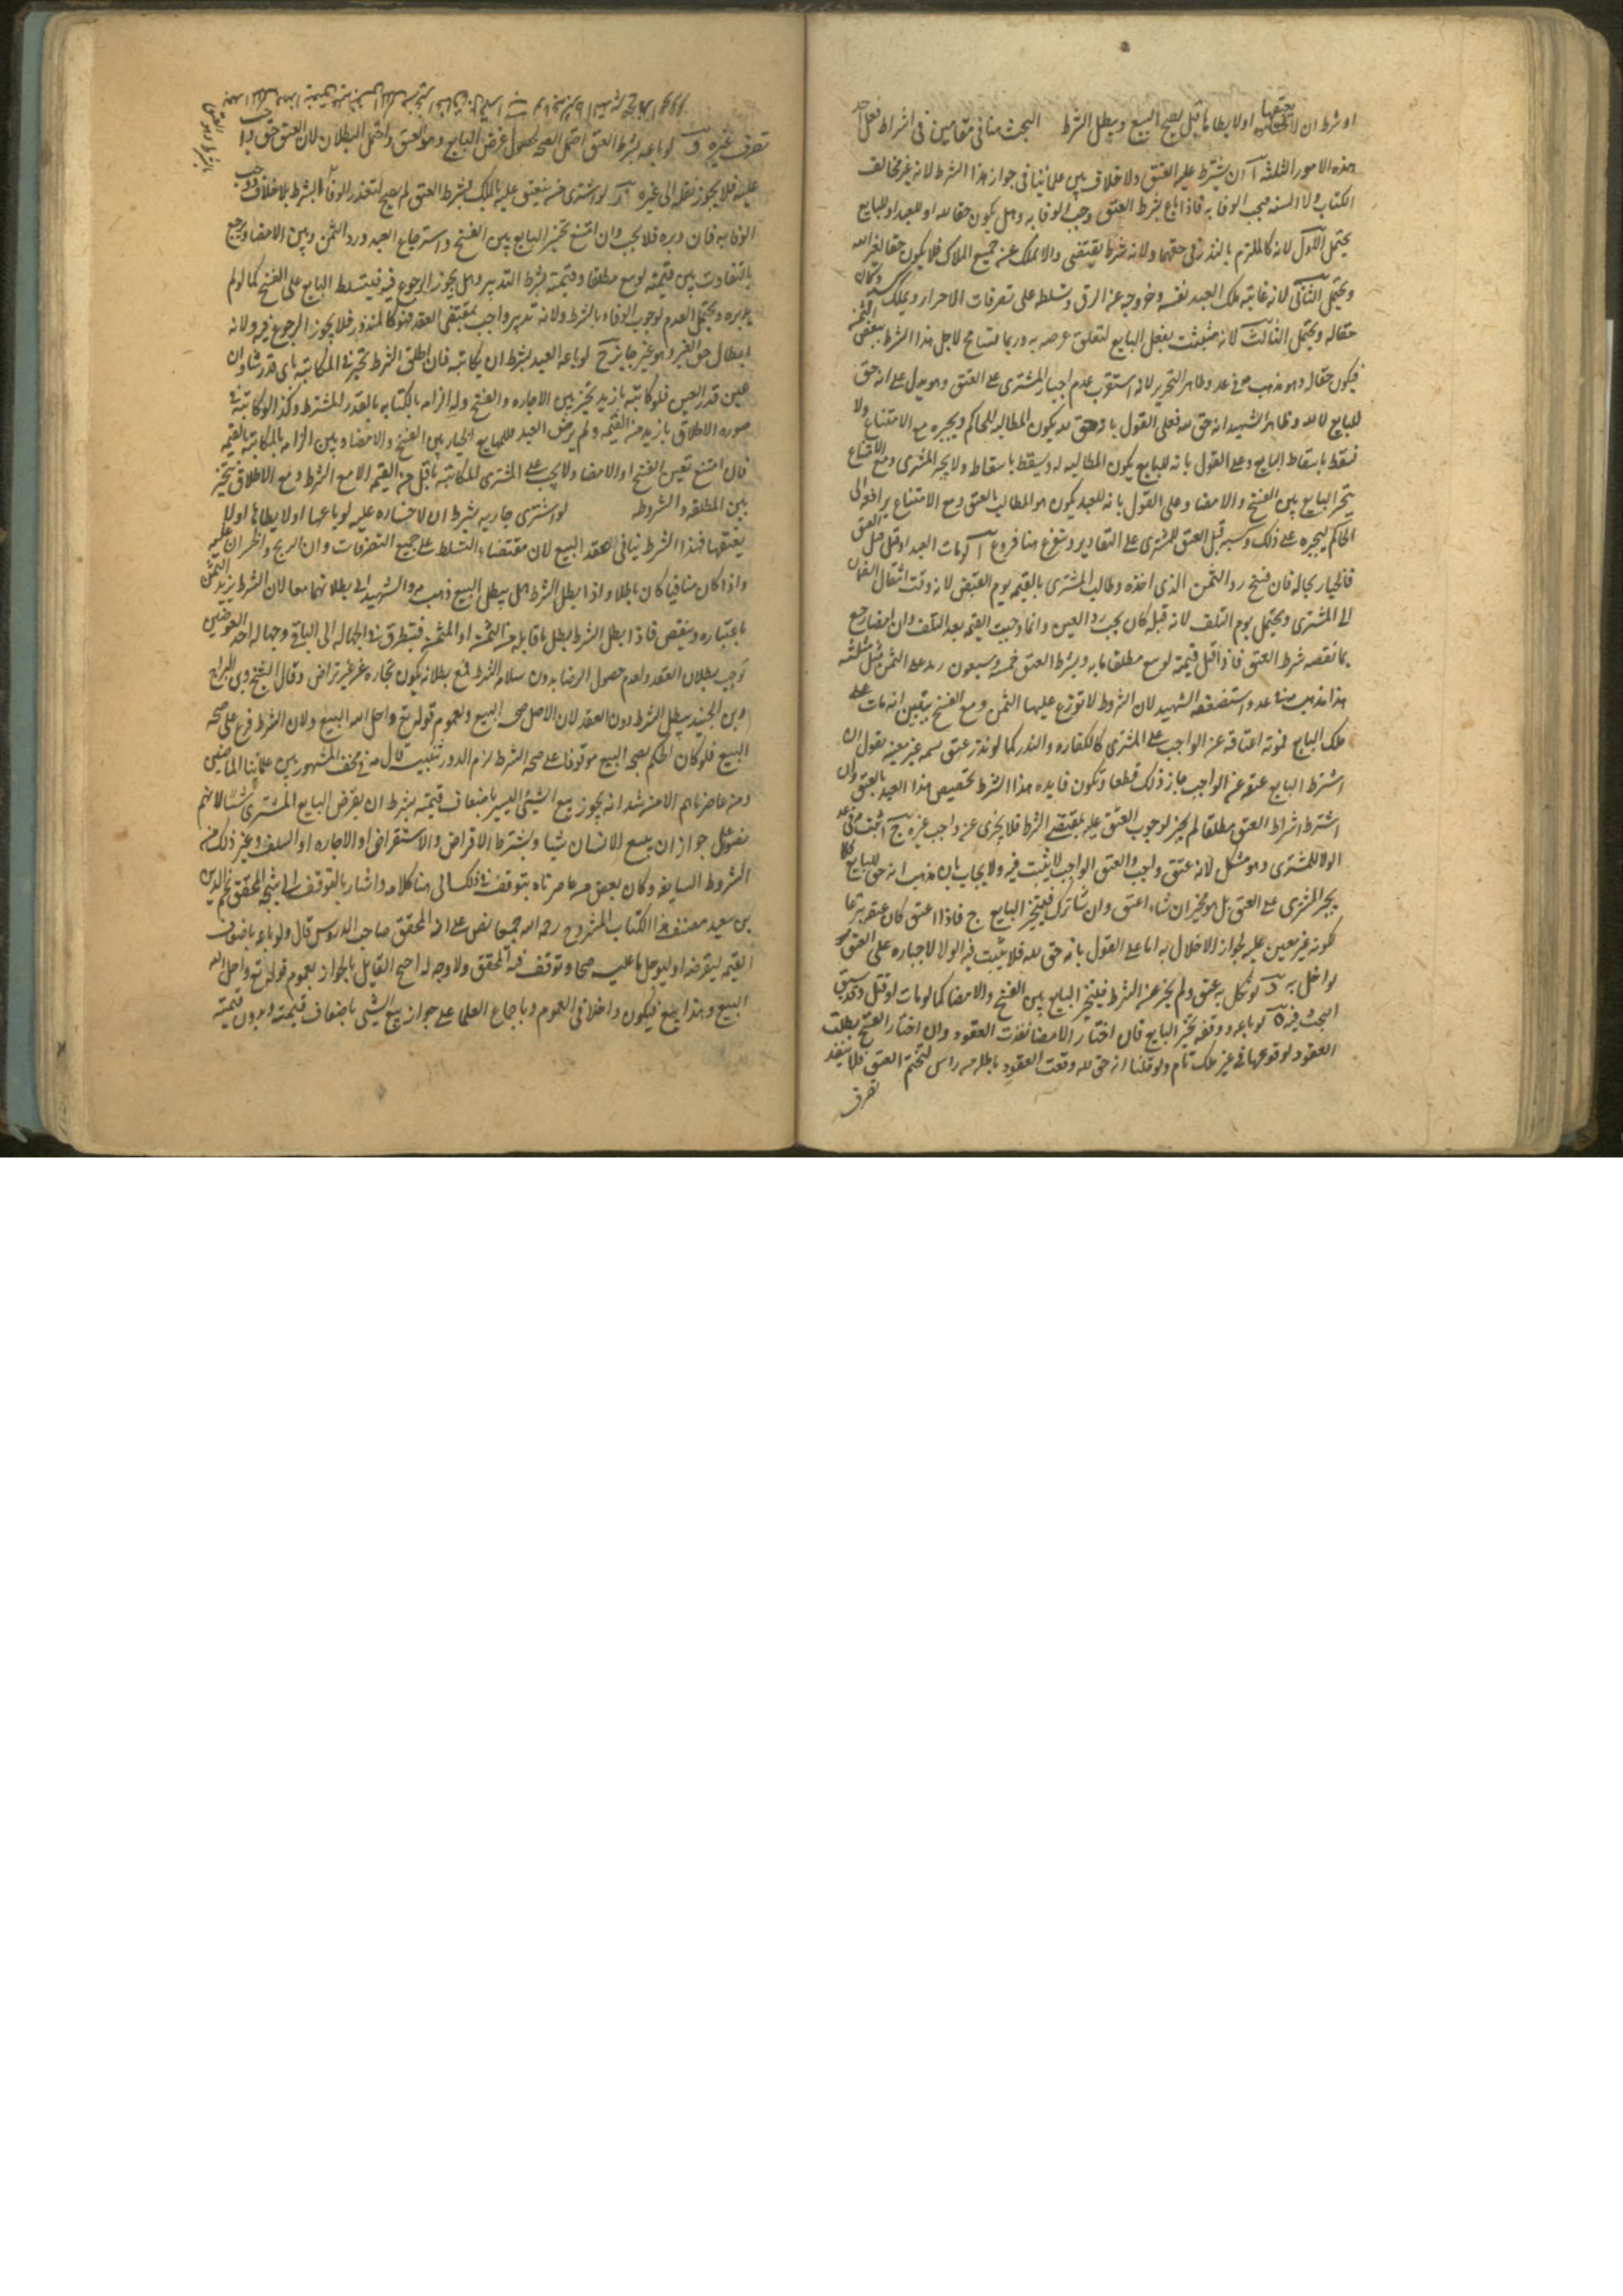 او شرط ان لا يعتقها او لا يطاها قيل يصح البيع ويبطل الشرط البحث هنا في مقامين في اشتراط فعل احد
هذه الامور الثلثه آ ان يشترط عليه العتق ولا خلاف بين علمائنا في جواز هذا الشرط لانه غير مخالف
الكتاب ولا السنه فيجب الوفا به فاذا باع بشرط العتق وجب الوفا به وهل يكون حقا لله او للعبد او للبايع
يحتمل الاول لانه كالملتزم بالنذر في حقهما ولانه شرط يقتضي والا يملك عنه جميع الملاك فلا يكون حقا لغير الله
ويحتمل الثاني لانه غايته ملك العبد نفسه وخروجه عن الرق وتسلطه على تصرفات الاحرار ويملك كسبه فكان
حقا له ويحتمل الثالث لانه مثبت بفعل البايع لتعلق غرضه به وربما تسامح لاجل هذا الشرط ببعض الثمن
فيكون حقا له وهو مذهب في عد وظاهر التحرير لانه استقرب عدم اجبار المشتري على العتق وهو يدل على انه حق
للبايع لا لله وظاهر الشهيد انه حق لله فعلى القول بانه حق لله يكون المطالبه للحاكم ويجبره مع الامتناع ولا
تسقط باسقاط البايع وعلى القول بانه للبايع يكون المطالبه له ويسقط باسقاطه ولا يجبر المشتري ومع الامتناع
يتخير البايع بين الفسخ والامضا وعلى القول بانه للعبد يكون هو المطالب بالعتق ومع الامتناع يرافعه الى
الحاكم ليجبره على ذلك وكسبه قبل العتق للمشتري على التقادير ويتفرع هنا فروع آ لو مات العبد او قتل قبل العتق
فالخيار بحاله فان فسخ رد الثمن الذي اخذه وطالب المشتري بالقيمه يوم القبض لانه وقت انتقال الضمان
الى المشتري ويحتمل يوم التلف لانه قبله كان يجب رد العين وانما وجبت القيمه بعد التلف وان امضا رجع
بما نقصه شرط العتق فاذا قيل قيمته لو بيع مطلقا مايه وبشرط العتق خمسه وسبعون زيد على الثمن مثل ثلثه
هذا مذهبه في عد واستضعفه الشهيد لان الشروط لا توزع عليها الثمن ومع الفسخ يتبين انه مات على
ملك البايع لموته اعتاقه عن الواجب على المشتري كالكفاره والنذر كما لو نذر عتق نسمه غير معينه نقول ان
اشترط البايع عتقه عن الواجب جاز ذلك قطعا وتكون فايده هذا الشرط تخصيص هذا العبد بالعتق وان
اشترط اشتراط العتق مطلقا لم يجز لوجوب العتق عليه بمقتضى الشرط فلا يجزى عن واجب غيره ج اثبت في عد
الولا للمشتري وهو مشكل لانه عتق واجب والعتق الواجب لا يثبت فيه ولا يجاب بان مذهبه انه حق للبايع فلا
يجبر المشتري على العتق بل هو مخير ان شاء اعتق وان شا ترك فيتخير البايع فاذا اعتق كان عتقه تبرعا
لكونه غير معين عليه لجواز الاخلال به اما على القول بانه حق لله فلا يثبت فيه الولا لاجباره على العتق
لو اخل به د لو نكل به عتق ولم يجز عن الشرط فيتخير البايع بين الفسخ والامضا كما لو مات او قتل وقد سبق
البحث فيه ه لو باعه او وقفه تخير البايع فان اختار الامضا نفذت العقود وان اختار الفسخ بطلت
العقود لوقوعها في غير ملك تام ولو قلنا انه حق لله وقعت العقود باطله من راس لتحتم العتق فلا ينفذ
تصرف
تصرف غيره و لو باعه بشرط العتق احتمل الصحه لحصول غرض البايع وهو العتق واحتمل البطلان لان العتق حق واجب
عليه فلا يجوز نقله الى غيره ز لو اشترى من ينعتق عليه بالملك بشرط العتق لم يصح لتعذر الوفا بالشرط بلا خلاف
الوفا به فان دبره فلا يجب وان امتنع تخير البايع بين الفسخ واسترجاع العبد ورد الثمن وبين الامضا ويرجع
بالتفاوت بين قيمته لو بيع مطلقا وقيمته بشرط التدبير وهل يجوز الرجوع فيه فيتسلط البايع على الفسخ كما لو لم
يدبره ويحتمل العدم لوجوب الوفاء بالشرط ولانه تدبير واجب بمقتضى العقد فهو كالمنذور فلا يجوز الرجوع فيه ولانه
ابطال حق الغير وهو غير جايز ح لو باعه العبد بشرط ان يكاتبه فان اطلق الشرط تخير في المكاتبه باي قدر شا وان
عين قدرا تعين فلو كاتبه بازيد تخير بين الاجازه والفسخ وله الزامه بالكتابه بالقدر المشترط وكذا لو كاتبه في
صوره الاطلاق بازيد من القيمه ولم يرض العبد فللبايع الخيار بين الفسخ والامضا وبين الزامه بالمكاتبه بالقيمه
فان امتنع تعين الفسخ او الامضا ولا يجب على المشتري المكاتبه باقل من القيمه الا مع الشرط ومع الاطلاق يتخير
بين المطلقه والمشروطه لو اشترى جاريه بشرط ان لا خساره عليه لو باعها او لا يطاها او لا
يعتقها فهذا الشرط ينافي العقد البيع لان مقتضاه التسلط على جميع التصرفات وان الربح والخسران عليه
واذا كان منافيا كان باطلا واذا بطل الشرط هل يبطل البيع ذهب والشهيد الى بطلانهما معا لان الشرط يزيد الثمن
باعتباره وينقص فاذا بطل الشرط بطل ما قابله من الثمن او المثمن فيتطرق الجهاله الى الباقي وجهاله احد العوضين
توجب بطلان العقد ولعدم حصول الرضا بدون سلامه الشرط فمع بطلانه يكون تجاره عن غير تراض وقال الشيخ وبن البراج
وبن الجنيد يبطل الشرط دون العقد لان الاصل صحه البيع ولعموم قوله تع واحل الله البيع ولان الشرط فرع على صحه
البيع فلو كان الحكم بصحه البيع موقوفا على صحه الشرط لزم الدور تنبيه قال في المشهور بين علمائنا الماضين
ومن عاصرناهم الا من شذ انه يجوز بيع الشيئ اليسير باضعاف قيمته بشرط ان يقرض البايع المشتري شيئا لانهم
نصوا على جواز ان يبيع الانسان شيا ويشترط الاقراض والاستقراض او الاجاره او السلف وغير ذلك من
الشروط السايغه وكان بعض من عاصرناه يتوقف في ذلك الى هنا كلامه واشار بالتوقف الى شيخه المحقق نجم الدين
بن سعيد مصنف هذا الكتاب المشروح رحمه الله جميعا نص على انه المحقق صاحب الدروس قال ولو باعه باضعاف
القيمه ليقرضه او ليوجل ما عليه صحا وتوقف فيه المحقق ولا وجه له احتج القايل بالجواز بعموم قوله تع واحل الله
البيع وهذا بيع فيكون داخلا في العموم وباجماع العلما على جواز بيع الشيئ باضعاف قيمته وبدون قيمته